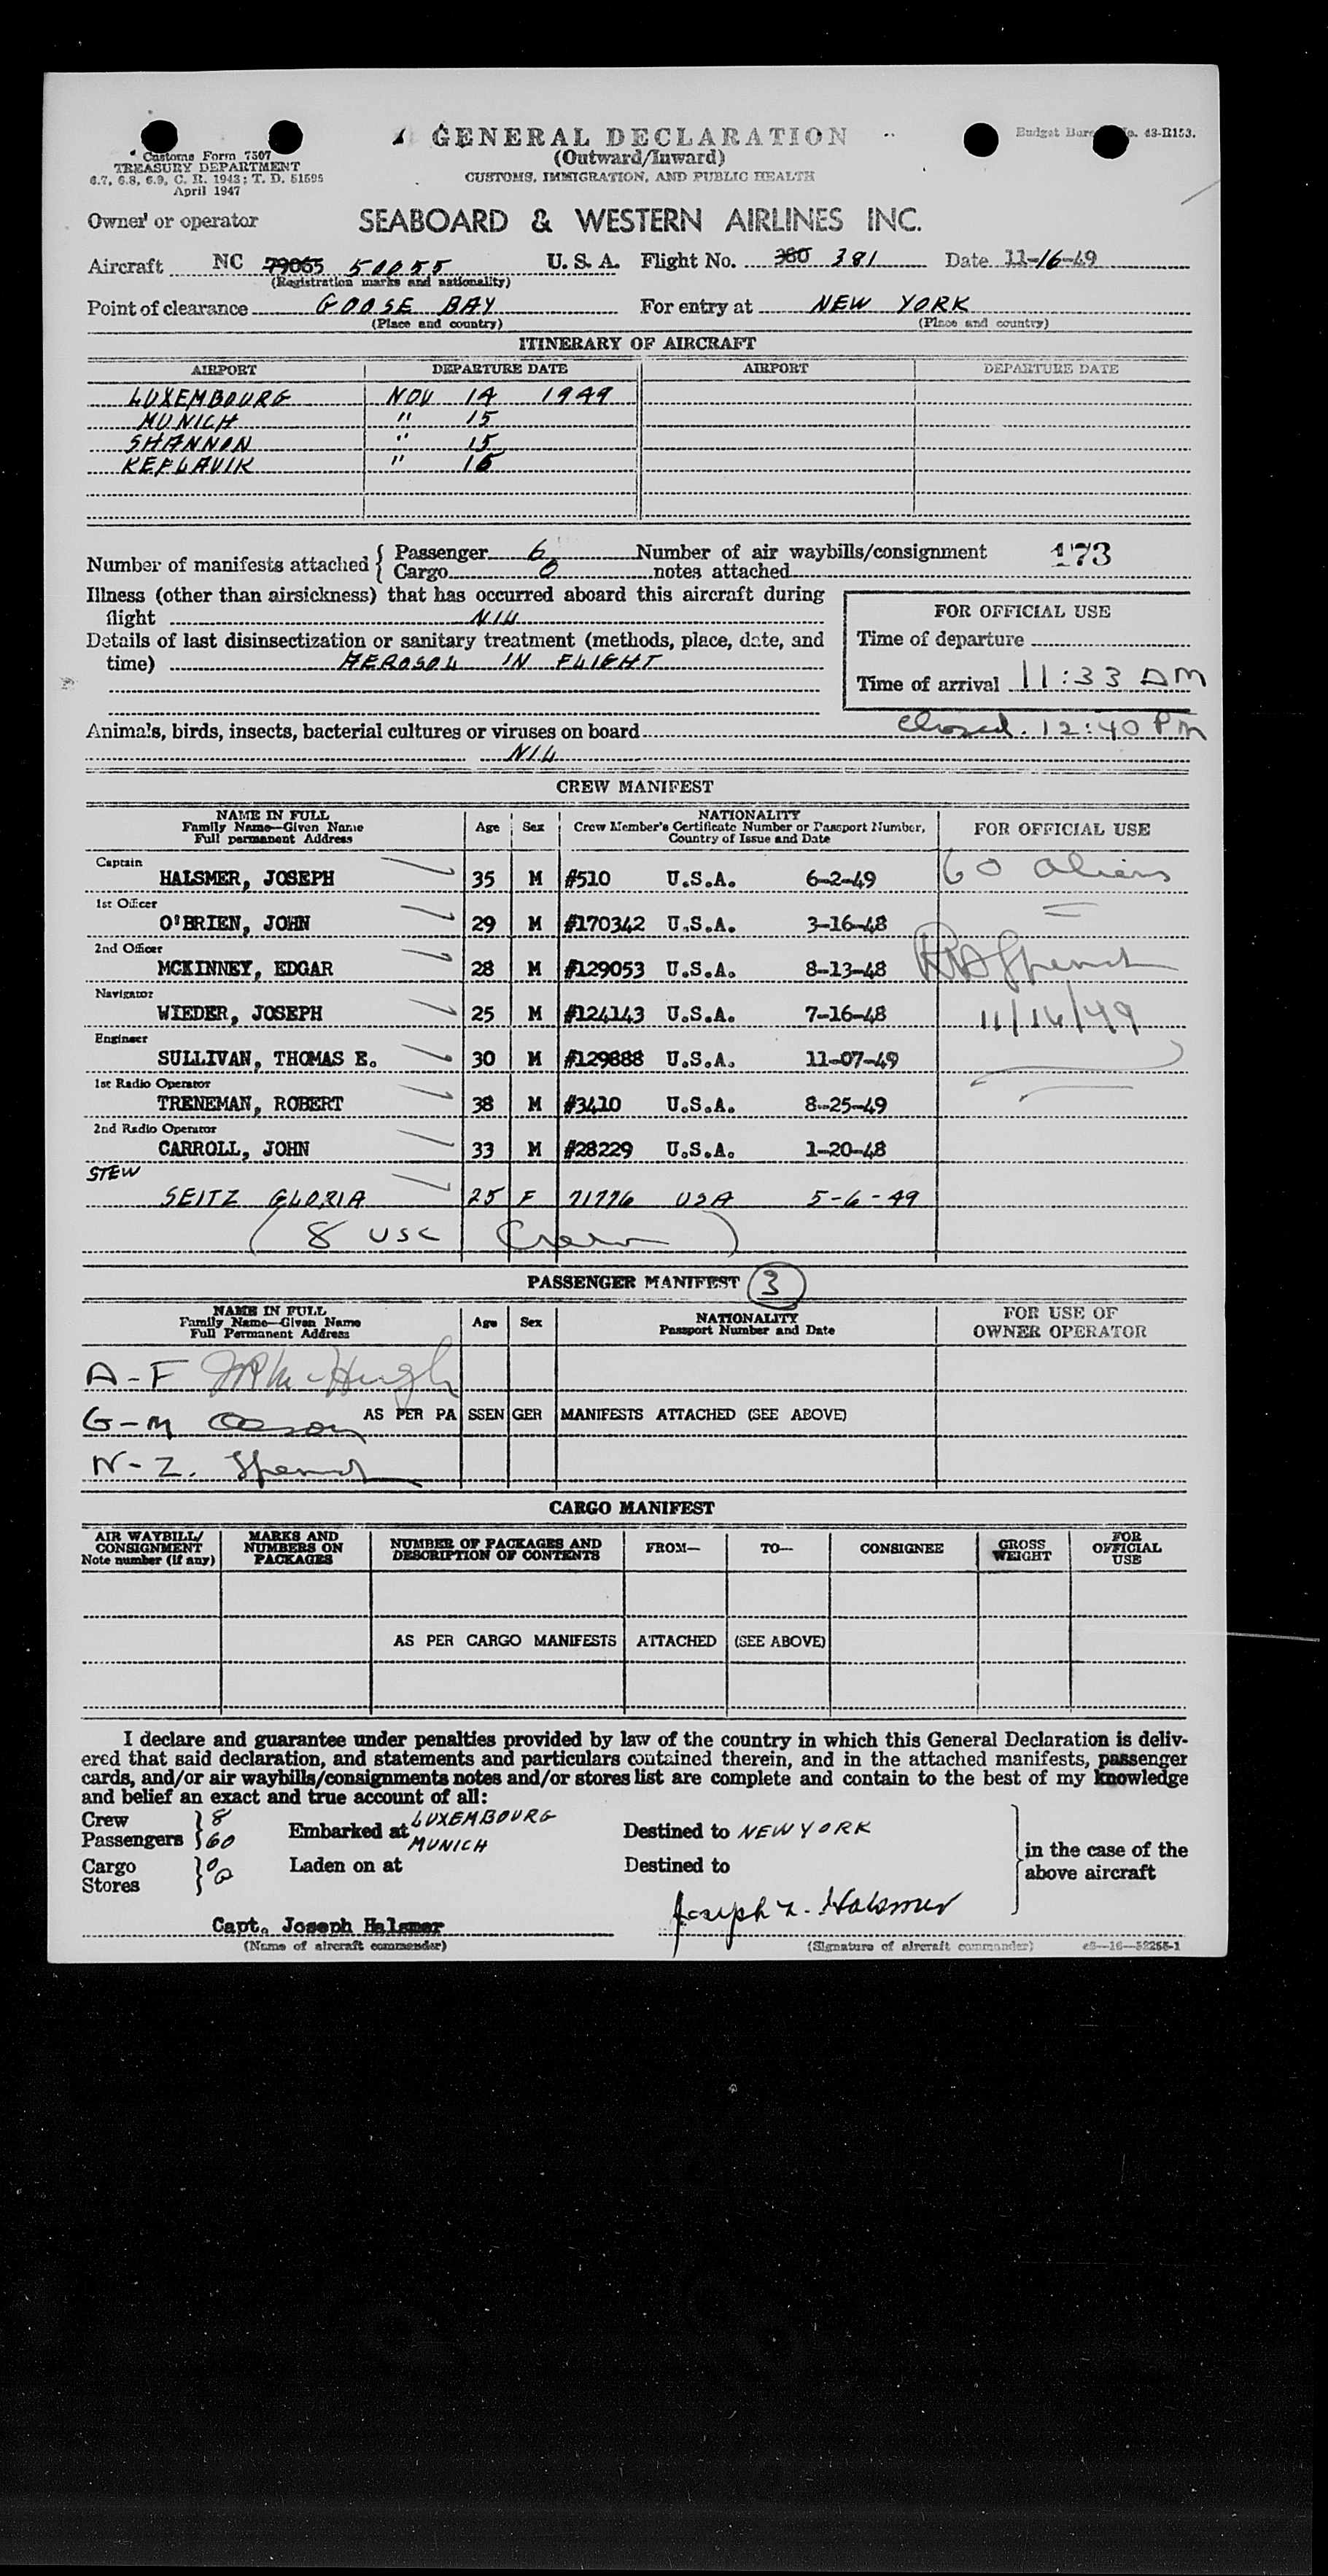 GENERAL DECLARATION
(Outward/Inward)
CUSTOMS, IMMIGRATION, AND PUBLIC HEALTH
Customs Form 7507
TREASURY DEPARTMENT
6.7, 6.8, 6.9, C. R. 1943; T. D. 51595
April 1947
Budget No. 43-R153.
Owner or operator SEABOARD & WESTERN AIRLINES INC.
Aircraft NC 79065 50055 U. S. A. Flight No. 380 381 Date 11-16-49
(Registration marks and nationality)
Point of clearance GOOSE BAY For entry at NEW YORK
(Place and country) (Place and country)
ITINERARY OF AIRCRAFT
AIRPORT DEPARTURE DATE AIRPORT DEPARTURE DATE
LUXEMBOURG NOV 14 1949
MUNICH " 15
SHANNON " 15
KEFLAVIK " 16
Number of manifests attached { Passenger 6 Number of air waybills/consignment 173
Cargo 0 notes attached
Illness (other than airsickness) that has occurred aboard this aircraft during
flight NIL
Details of last disinsectization or sanitary treatment (methods, place, date, and
time) AEROSOL IN FLIGHT
FOR OFFICIAL USE
Time of departure
Time of arrival 11:33 AM
closed. 12:40 PM
Animals, birds, insects, bacterial cultures or viruses on board
NIL
CREW MANIFEST
NAME IN FULL
Family Name—Given Name
Full permanent Address
Age Sex
NATIONALITY
Crew Member's Certificate Number or Passport Number,
Country of Issue and Date
FOR OFFICIAL USE
Captain
HALSMER, JOSEPH 35 M #510 U.S.A. 6-2-49 60 aliens
1st Officer
O'BRIEN, JOHN 29 M #170342 U.S.A. 3-16-48
2nd Officer
MCKINNEY, EDGAR 28 M #129053 U.S.A. 8-13-48
Navigator
WIEDER, JOSEPH 25 M #124143 U.S.A. 7-16-48 11/16/49
Engineer
SULLIVAN, THOMAS E. 30 M #129888 U.S.A. 11-07-49
1st Radio Operator
TRENEMAN, ROBERT 38 M #3410 U.S.A. 8-25-49
2nd Radio Operator
CARROLL, JOHN 33 M #28229 U.S.A. 1-20-48
STEW
SEITZ GLORIA 25 F 71776 USA 5-6-49
(8 USC Crew)
PASSENGER MANIFEST 3
NAME IN FULL
Family Name—Given Name
Full Permanent Address
Age Sex
NATIONALITY
Passport Number and Date
FOR USE OF
OWNER OPERATOR
A-F
G-M AS PER PASSENGER MANIFESTS ATTACHED (SEE ABOVE)
N-Z.
CARGO MANIFEST
AIR WAYBILL/
CONSIGNMENT
Note number (if any)
MARKS AND
NUMBERS ON
PACKAGES
NUMBER OF PACKAGES AND
DESCRIPTION OF CONTENTS
FROM—
TO—
CONSIGNEE
GROSS
WEIGHT
FOR
OFFICIAL
USE
AS PER CARGO MANIFESTS ATTACHED (SEE ABOVE)
I declare and guarantee under penalties provided by law of the country in which this General Declaration is deliv-
ered that said declaration, and statements and particulars contained therein, and in the attached manifests, passenger
cards, and/or air waybills/consignments notes and/or stores list are complete and contain to the best of my knowledge
and belief an exact and true account of all:
Crew 8
Passengers 60
Embarked at LUXEMBOURG
MUNICH
Destined to NEW YORK
Cargo 0
Stores 0
Laden on at
Destined to
in the case of the
above aircraft
Capt. Joseph Halsmer
(Name of aircraft commander)
Joseph L. Halsmer
(Signature of aircraft commander)